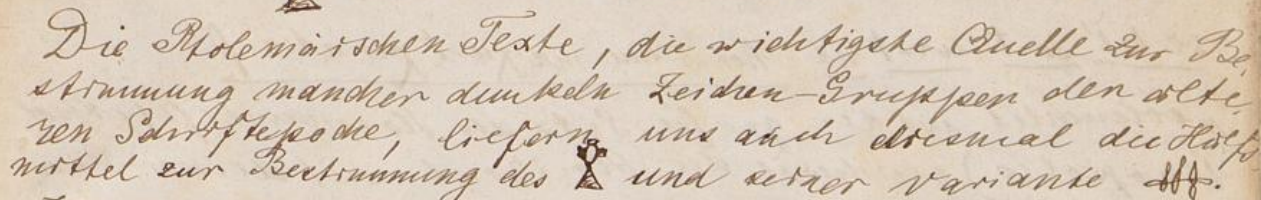 Die Ptolemäischen Texte, die wichtigste Quelle zur Be-
stimmung mancher dunkeln Zeichen-Gruppen der älte
ren Schriftepoche, liefern uns auch diesmal die Hülfs
mittel zur Bestimmung des und seiner Variante